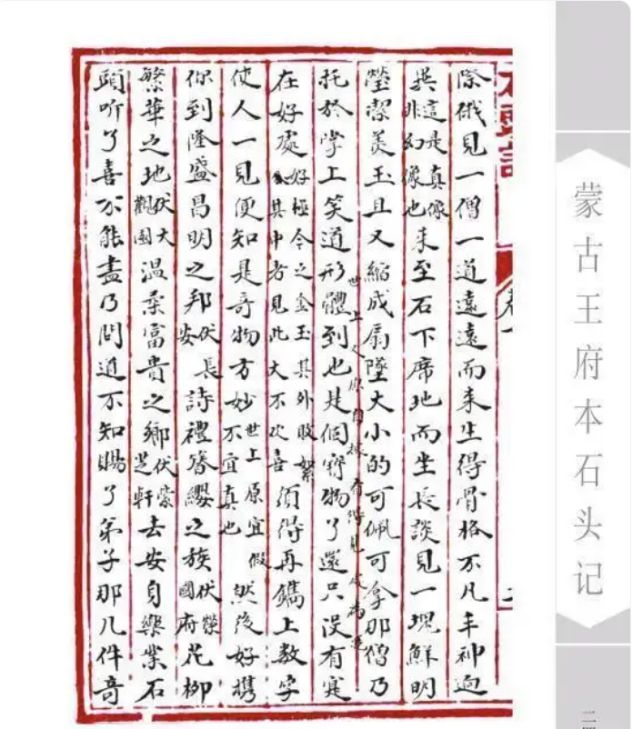 際俄見一僧一道遠遠而来生得骨格不凡丰神迥
異這是真像非幻像也来至石下席地而坐長談見一塊鮮明
瑩潔美玉且又縮成扇墜大小的可佩可拿那僧乃
世上人原自據看得見處為憑
托於掌上笑道形體到也是個寳物了還只没有寔
在好處好極今之金玉其外敗絮其中者見此大不欢喜須得再鐫上数字
使人一見便知是奇物方妙世上原宜假不宜真也然後好携
你到隆盛昌明之邦伏長安詩禮簪纓之族伏榮國府花柳
繁華之地伏大觀園温柔富貴之鄉伏紫芝軒去安身樂業石
頭听了喜不能盡乃問道不知賜了弟子那几件奇
蒙古王府本石头记